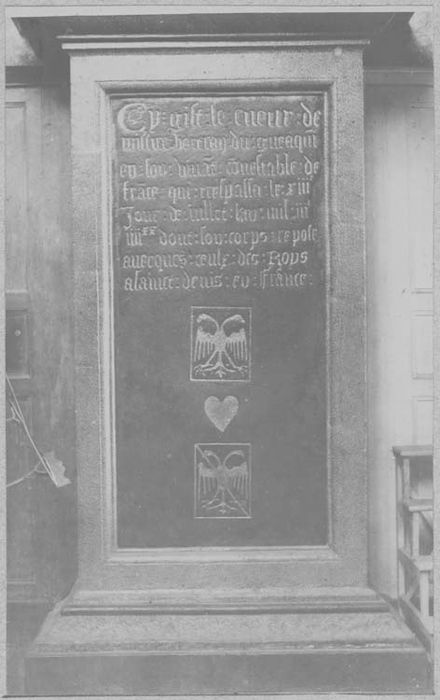 Cy : gist : le : cueur : de
missire bertran du gueaqui
en : son : viuāt : cōnestable de
frāce · qui · trespassa · le · xiiiᵉ
Jour · de · iullet · lan · mil · iiiᶜ
iiiiˣˣ dont : son : corps : repose
auecques : ceulz : des : Roys
a sainct : denis : en : france :